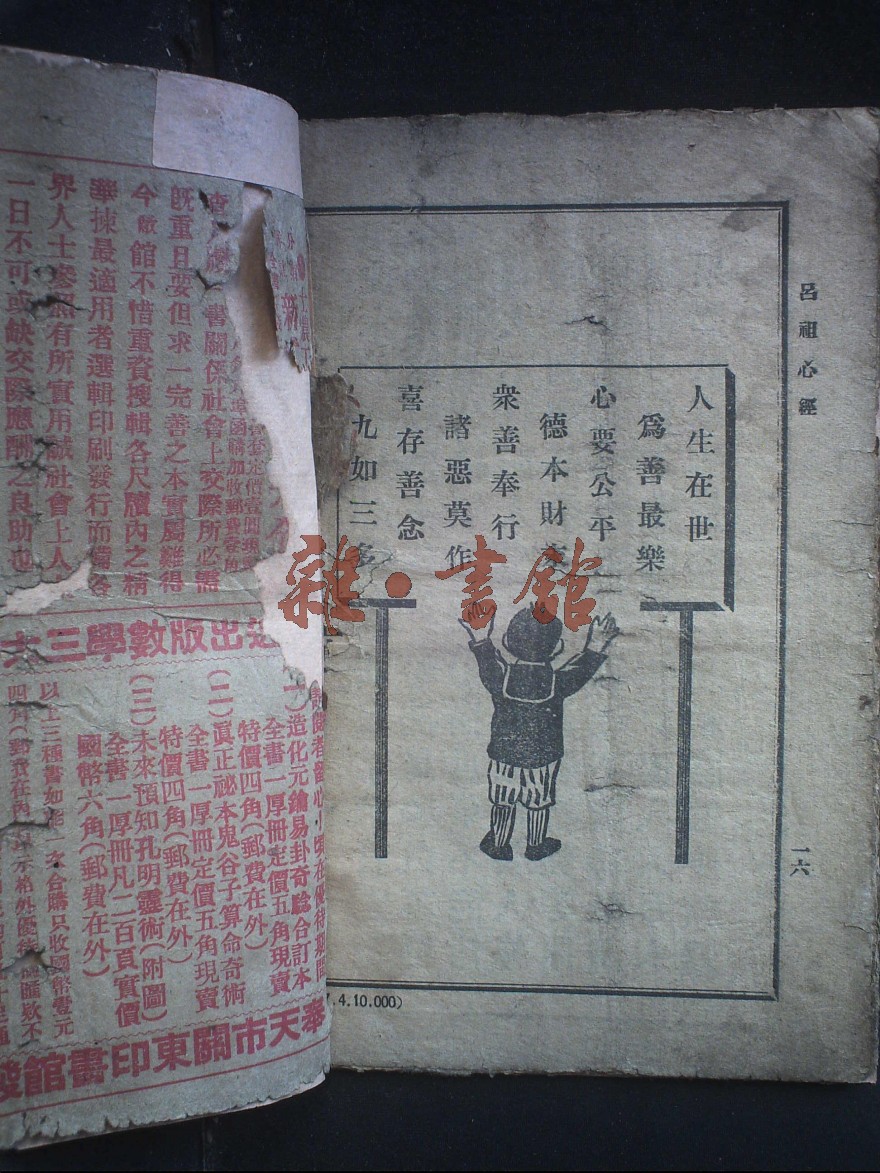 呂祖心經
人生在世
爲善最樂
心要公平
德本財末
衆善奉行
諸惡莫作
喜存善念
九如三多
一六
4.10.000)
雜·書館
書關係社會上交際所必需
旣重日要但求一完善之本實屬難得
今敝館不惜重資搜輯各尺牘內之精
華揀最適用者選輯印刷發行而備各
界人士參照有所實用誠社會上人
一日不可或缺交際應酬之良助也
出版數學三大
(一)造化元鑰易卦奇騐合訂本
全書一厚冊定價五角現賣
特價四角(郵費在外)
(二)眞正祕本鬼谷子算命奇術
全書一厚冊定價五角現賣
特價四角(郵費在外)
(三)未來預知孔明靈術(附圖)
全書一厚冊凡二百頁實價
國幣六角(郵費在外)
以上三種書如能一次合購只收國幣壹元
奉天市關東印書館